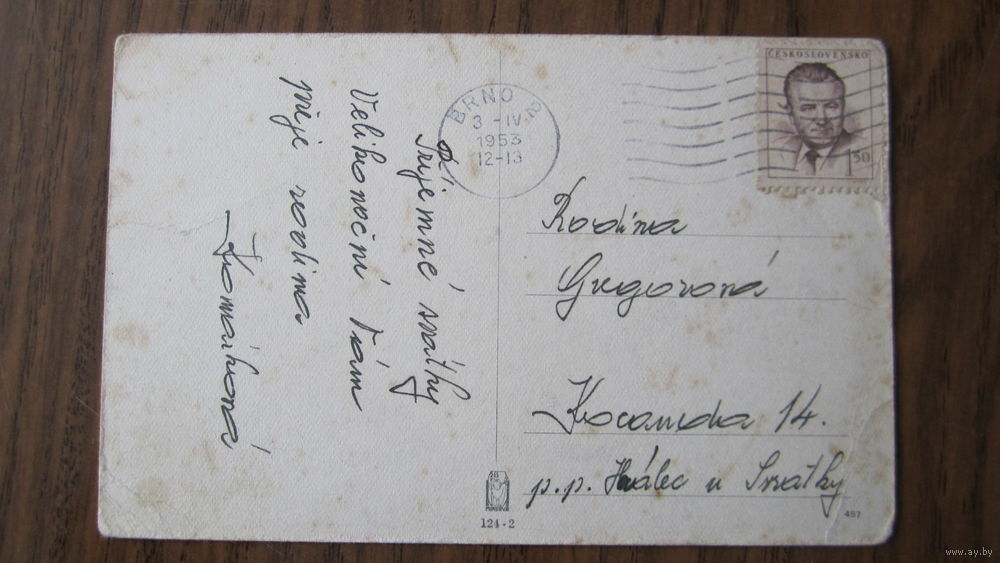 Příjemné svátky
Velikonoční Vám
přeje rodina
BRNO 2
3 -IV.
1953
12-13
ČESKOSLOVENSKO
1.50
Rodina
Gregorová
Kocanda 14.
p.p. Hrálec u Svratky
MINERVA
124-2
457
www.ay.by